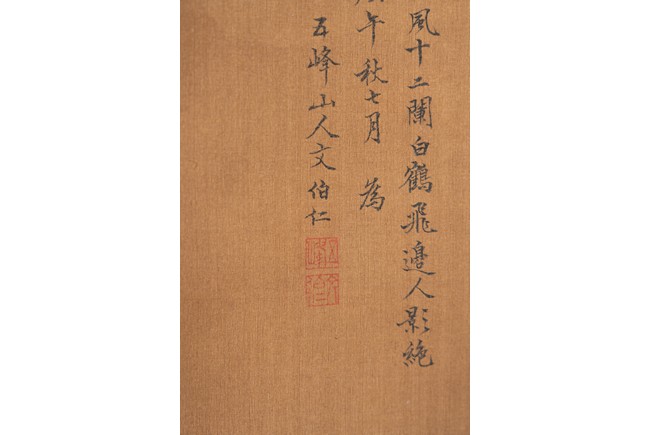 風十二闌白鶴飛邊人影絶
午秋七月 為
五峰山人文伯仁